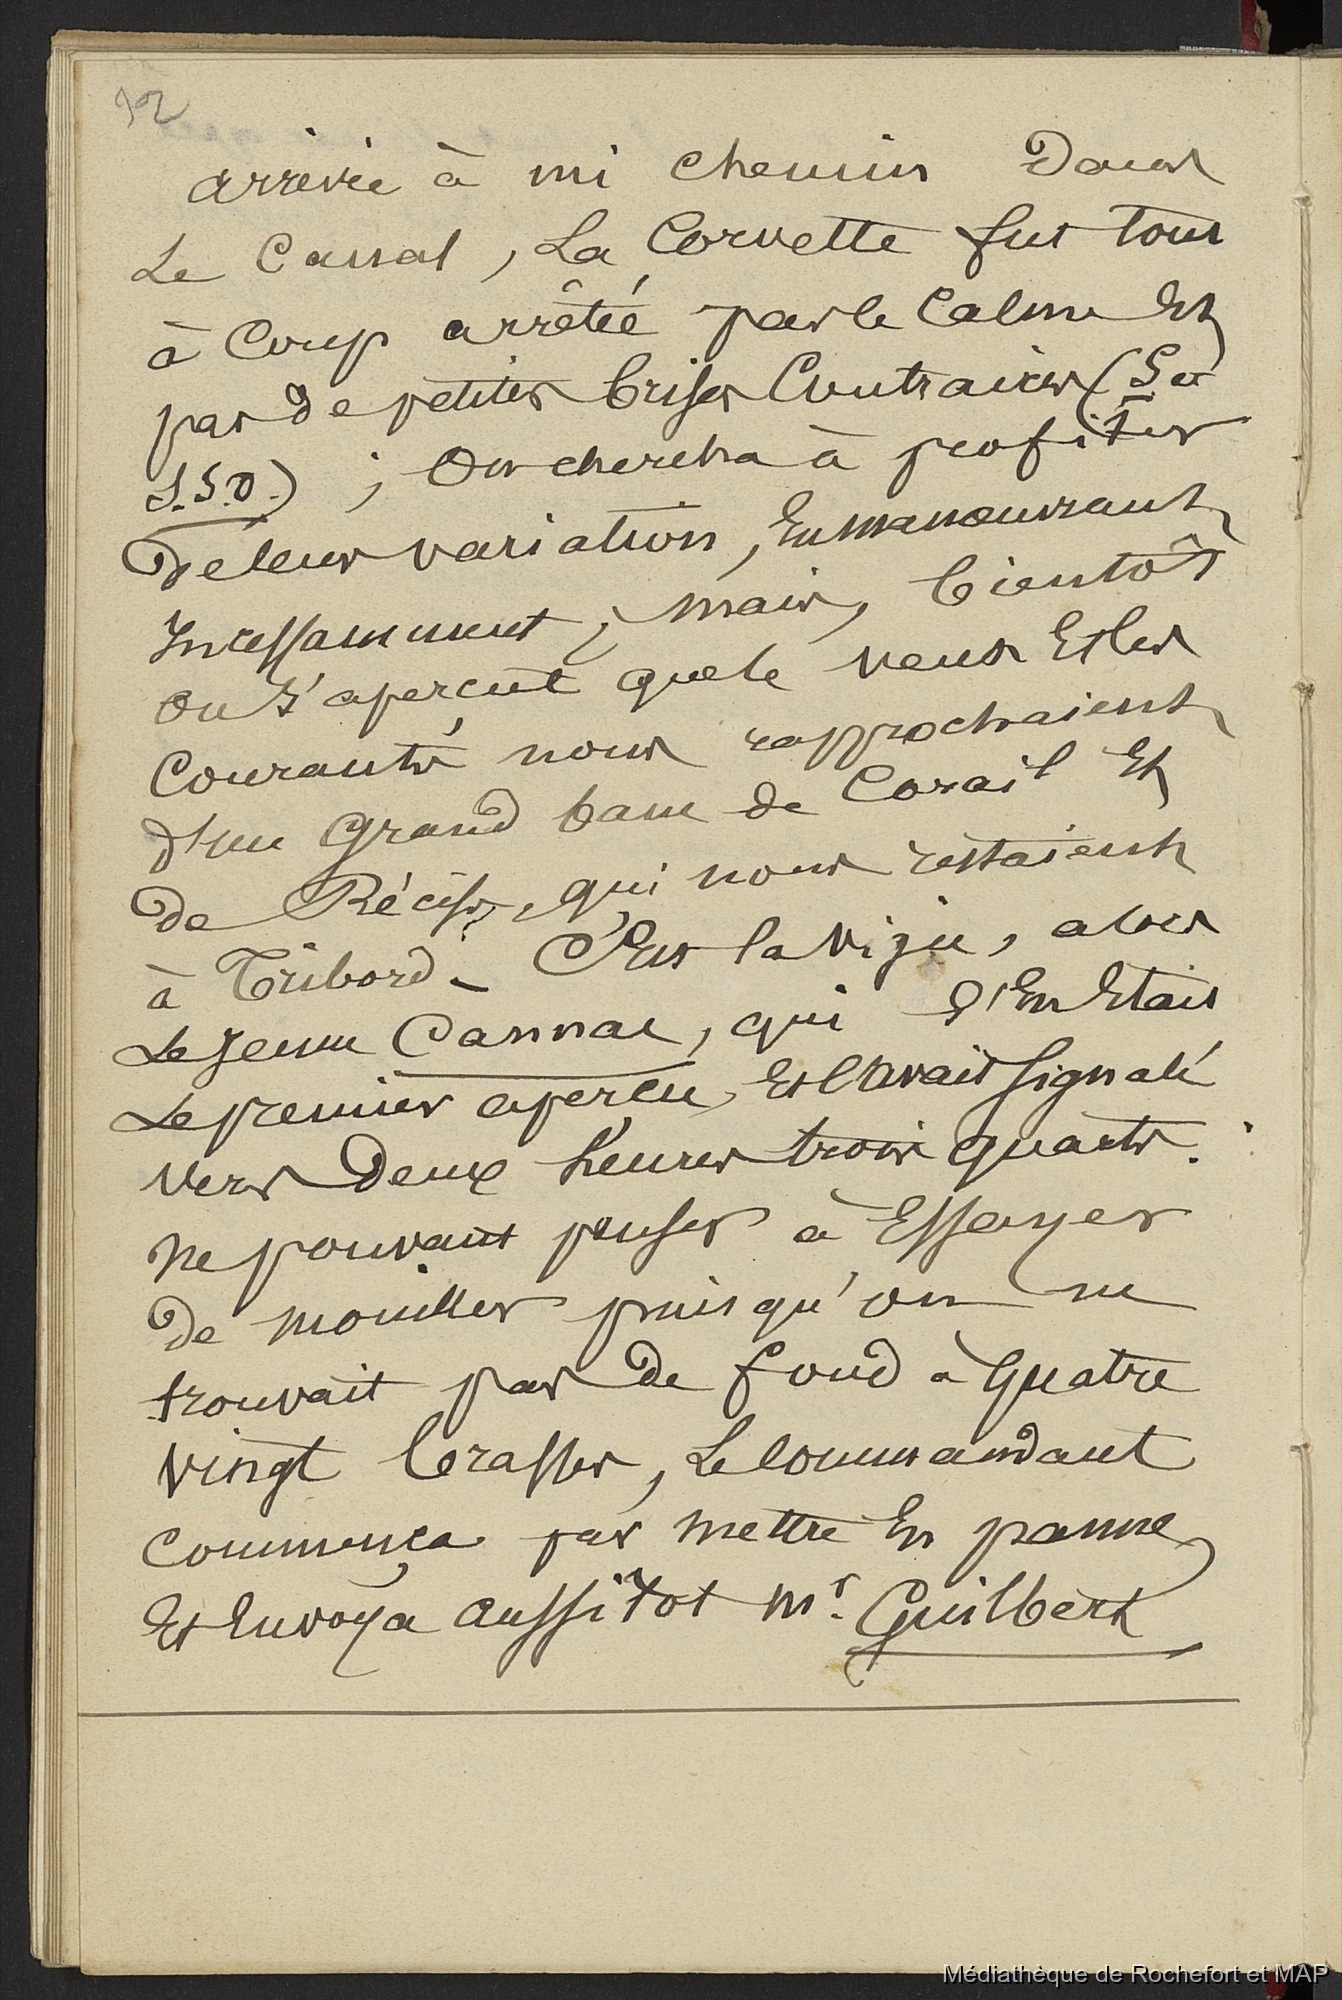 92
arrivée à mi chemin dans
Le Canal, La Corvette fut tout
à Coup arrêtée par le Calme Et
par de petites brises Contraires (S et
S.S.O.) ; On chercha à profiter
de leur variation, En manœuvrant
Incessamment ; mais, bientôt
On s'aperçut que le vent Et les
Courants nous rapprochaient
d'un Grand banc de Corail Et
de Récifs, qui nous restaient
à Tribord. C'Est la vigie, alors
Le Jeune Cannac, qui s'En Etait
Le premier aperçu, Et l'avait signalé
vers deux heures trois quarts.
Ne pouvant penser à Essayer
de mouiller puisqu'on ne
trouvait pas de fond à Quatre
vingt brasses, Le Commandant
Commença par mettre En panne
Et Envoya aussitot Mr. Guilbert
Médiathèque de Rochefort et MAP